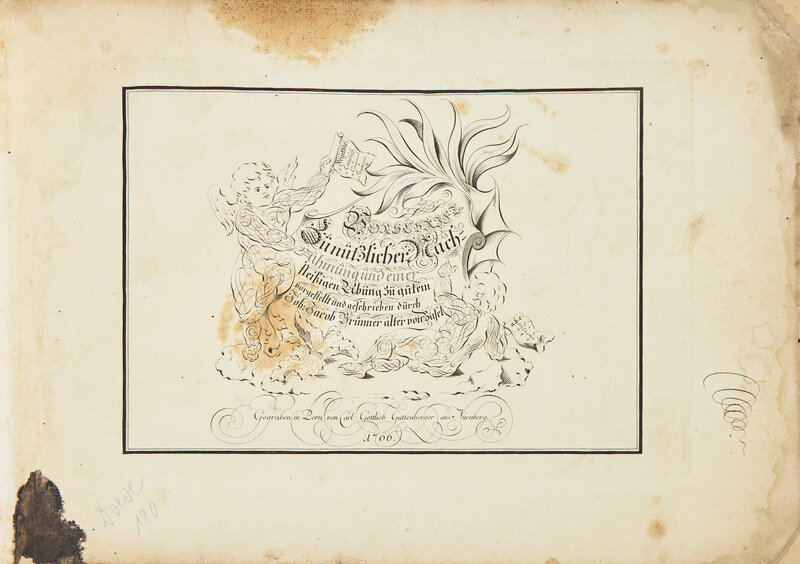 VORSCHRIFT
Zu nützlicher Nach-
Ahmung und einer
fleißigen Übung zu gutem
vorgestellt und geschrieben durch
Joh: Jacob Brunner älter von Basel
Gegraben in Bern von Carl Gottlieb Guttenberger aus Nürnberg.
1766.
190